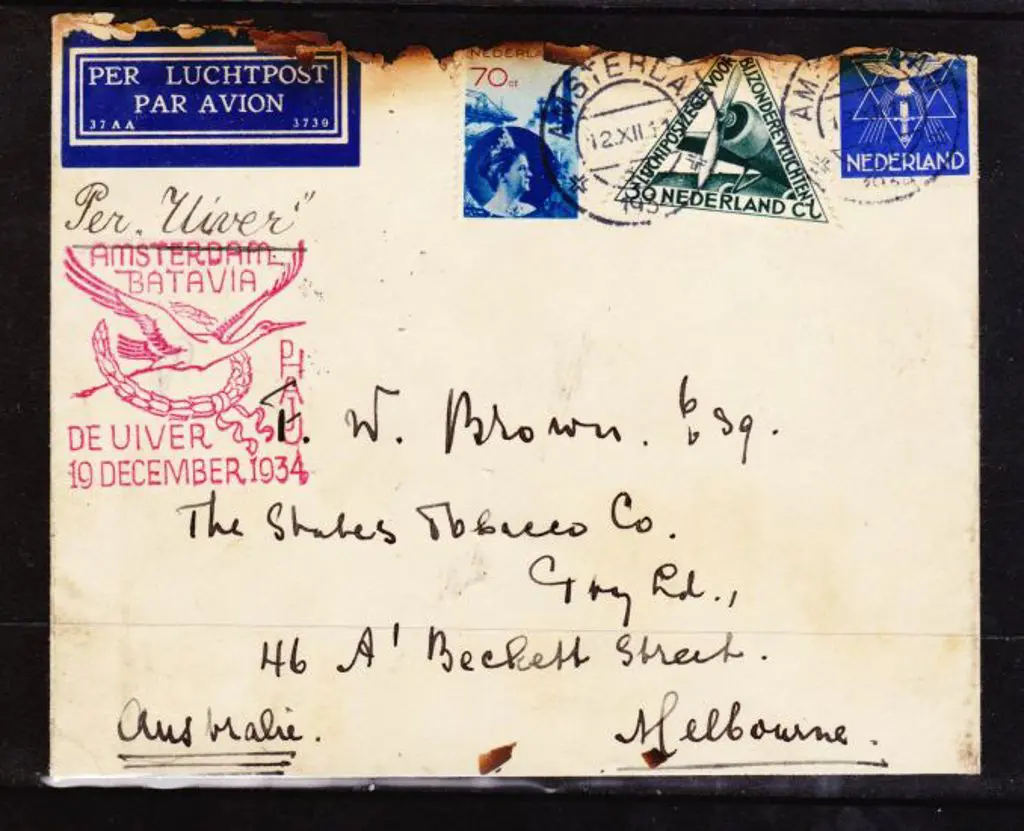 PER LUCHTPOST
PAR AVION
37AA 3739
NEDERLA
70ct
AMSTERDA
12.XII.
193
LUCHTPOSTZEGEL VOOR
BIJZONDERE VLUCHTEN
30 NEDERLAND CT
AM
NEDERLAND
Per "Uiver"
AMSTERDAM
BATAVIA
PHATU
DE UIVER
19 DECEMBER 1934
F. W. Brown. Esq.
The States Tobacco Co.
Pty Ld.,
46 A' Beckett Street.
Australie.
Melbourne.